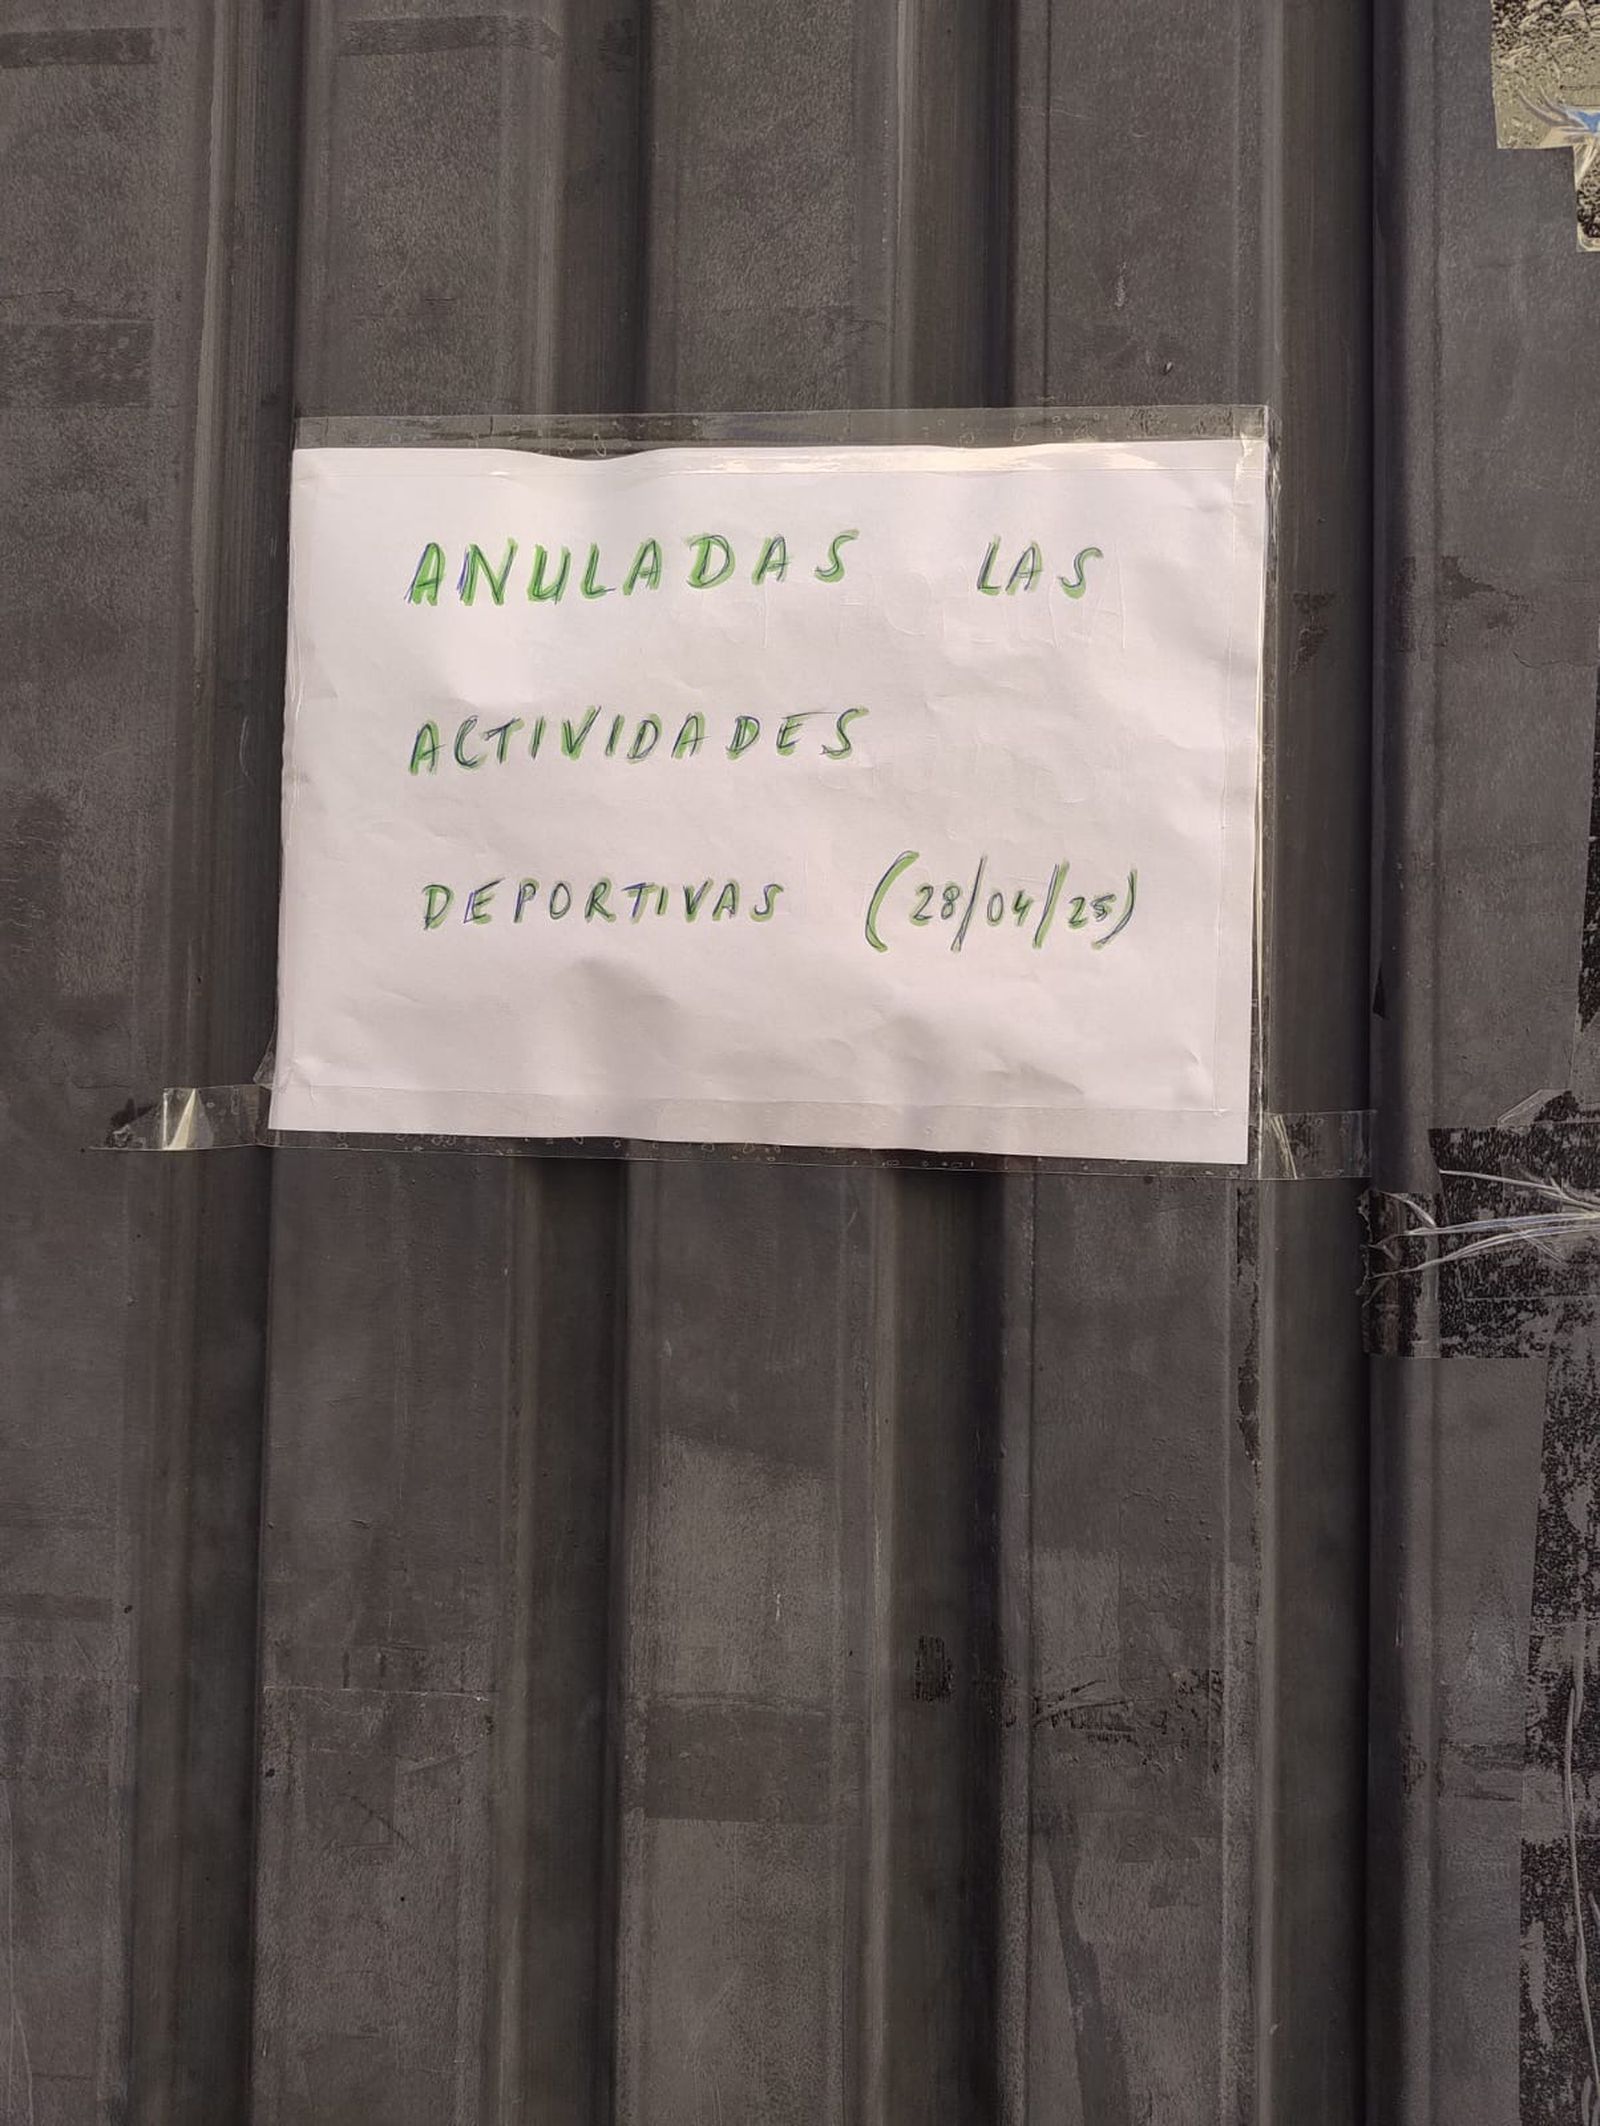 ANULADAS LAS
ACTIVIDADES
DEPORTIVAS (28/04/25)